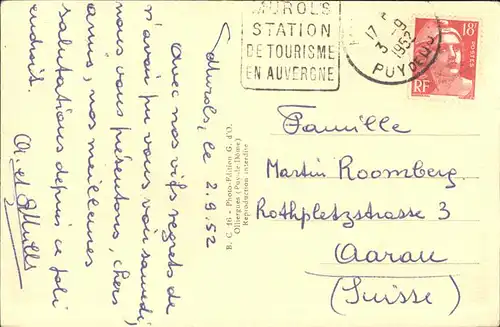 MUROLS
STATION
DE TOURISME
EN AUVERGNE
17
3 -9
1952
PUY DE DOME
18F
POSTES
RF
Murols, le 2.9.52
Avec nos vifs regrets de
n'avoir pu vous voir samedi,
nous vous présentons, chers
amis, nos meilleures
salutations depuis ce joli
endroit.
B. C. 16 - Photo-Edition G. d'O.
Olliergues (Puy-de-Dôme)
Reproduction interdite
Famille
Martin Roomberg.
Rothpletzstrasse 3
Aarau
(Suisse)